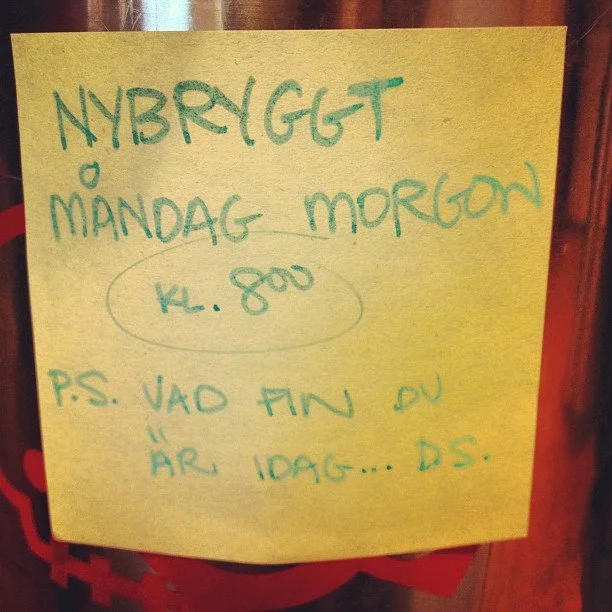 NYBRYGGT
MÅNDAG MORGON
KL. 800
P.S. VAD FIN DU
ÄR IDAG... DS.